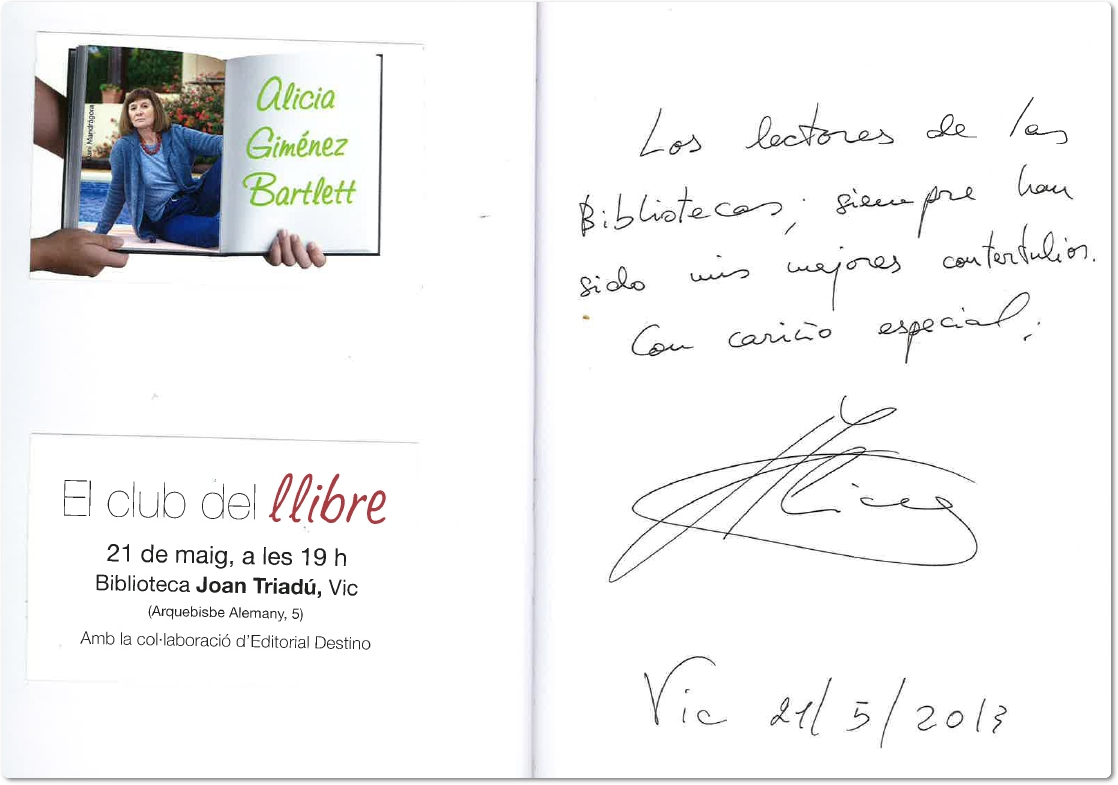 Alicia
Giménez
Bartlett
El club del llibre
21 de maig, a les 19 h
Biblioteca Joan Triadú, Vic
(Arquebisbe Alemany, 5)
Amb la col·laboració d'Editorial Destino
Los lectores de las
Bibliotecas, siempre han
sido mis mejores contertulios.
Con cariño especial:
Alicia
Vic 21/5/2013